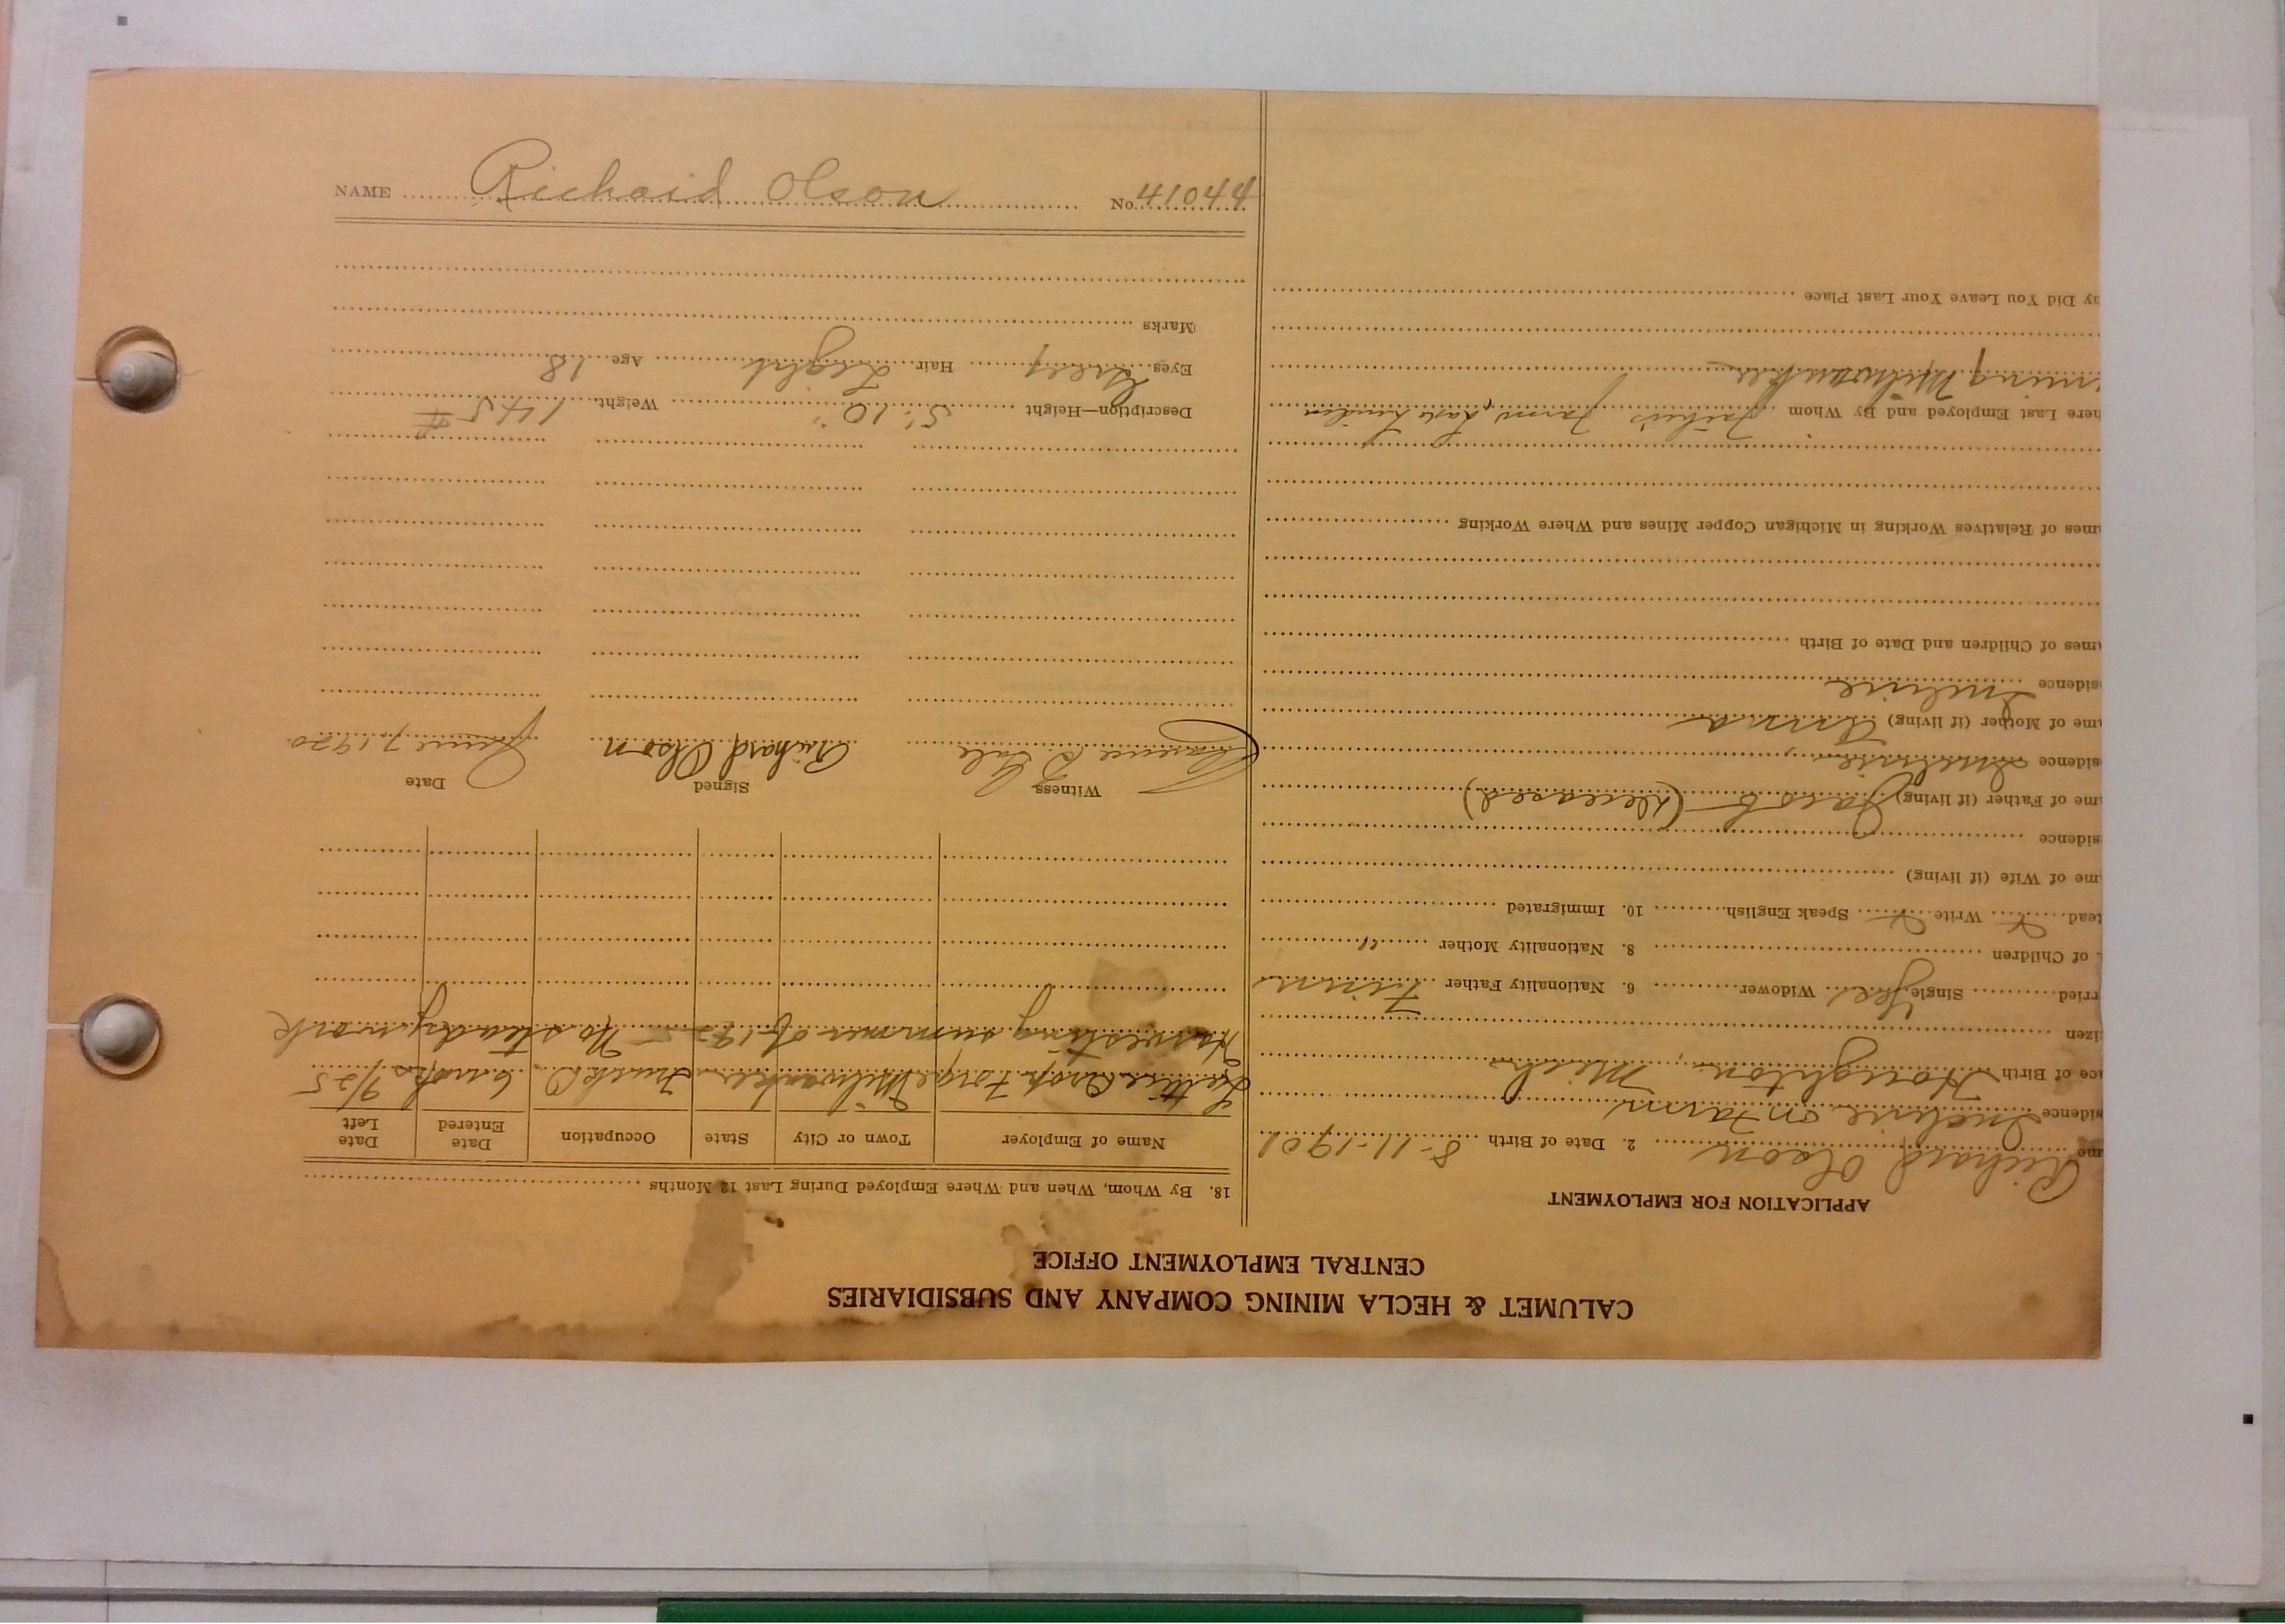 NAME Richard Olson No. 41044
CALUMET & HECLA MINING COMPANY AND SUBSIDIARIES
CENTRAL EMPLOYMENT OFFICE
APPLICATION FOR EMPLOYMENT
me Richard Olson 2. Date of Birth 8-11-1901
sidence on Farm
ce of Birth Houghton, Mich.
izen
rried Single Yes Widower 6. Nationality Father Finn
. of Children 8. Nationality Mother "
tead Write Speak English 10. Immigrated
me of Wife (if living)
sidence
me of Father (if living) Jacob (deceased)
sidence
me of Mother (if living) Anna
sidence
mes of Children and Date of Birth
mes of Relatives Working in Michigan Copper Mines and Where Working
here Last Employed and By Whom Father's Farm, Lake Linden
Milwaukee
y Did You Leave Your Last Place
18. By Whom, When and Where Employed During Last 12 Months
Name of Employer Town or City State Occupation Date Entered Date Left
Drop Forge Milwaukee 6 mos 9/25
Harvesting summer of 19 - No steady work
Witness Signed Date
Clarence Richard Olson June 7, 1920
Description—Height 5' 10" Weight 145 #
Eyes Grey Hair Light Age 18
Marks